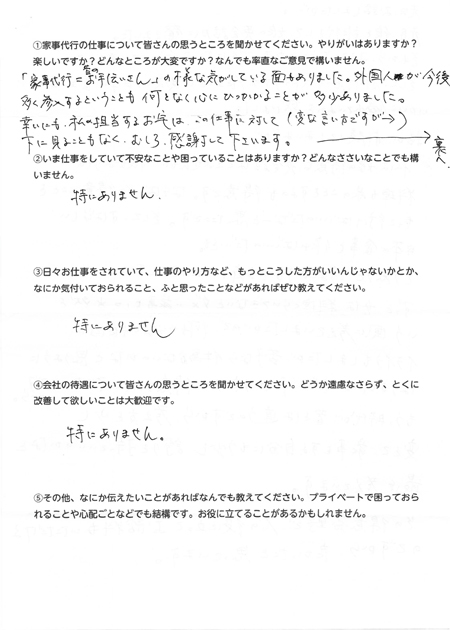 ①家事代行の仕事について皆さんの思うところを聞かせてください。やりがいはありますか？
楽しいですか？どんなところが大変ですか？なんでも率直なご意見で構いません。
「家事代行＝昔のお手伝いさん」の様な気がしている面もありました。外国人が今後
多く参入するということも何となく心にひっかかることが多少ありました。
幸いにも、私の担当するお客は、この仕事に対して（変な言い方ですが→）
下に見ることもなく、むしろ、感謝して下さいます。 → 裏へ
②いま仕事をしていて不安なことや困っていることはありますか？どんなささいなことでも構
いません。
特にありません。
③日々お仕事をされていて、仕事のやり方など、もっとこうした方がいいんじゃないかとか、
なにか気付いておられること、ふと思ったことなどがあればぜひ教えてください。
特にありません
④会社の待遇について皆さんの思うところを聞かせてください。どうか遠慮なさらず、とくに
改善して欲しいことは大歓迎です。
特にありません。
⑤その他、なにか伝えたいことがあればなんでも教えてください。プライベートで困っておら
れることや心配ごとなどでも結構です。お役に立てることがあるかもしれません。